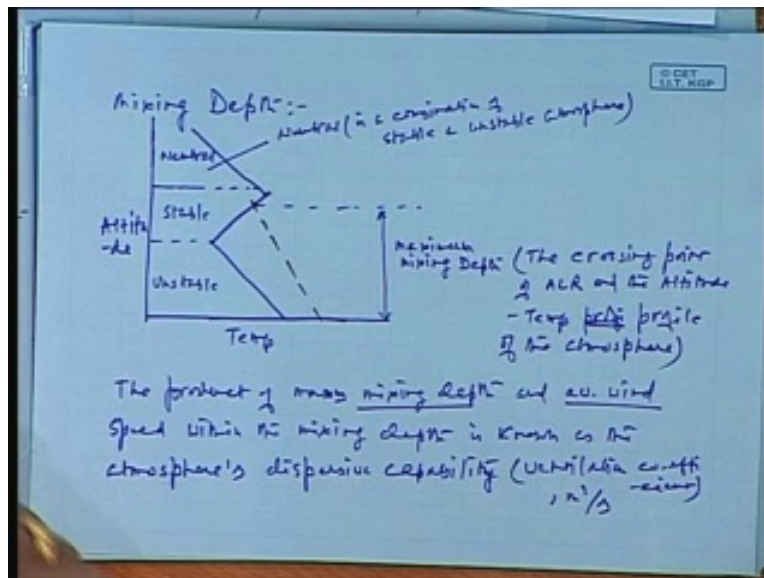 © CET
I.I.T. KGP
Mixing Depth :-
Neutral (is a combination of
stable & unstable atmosphere)
Neutral
Stable
Altitu
-de
Unstable
Temp
maximum
mixing Depth
(The crossing point
of ALR and the Altitude
- Temp profile
of the atmosphere)
The product of mixing depth and av. wind
Speed within the mixing depth is known as the
atmosphere's dispersive capability (ventilation co-effi
-cient)
, m²/s